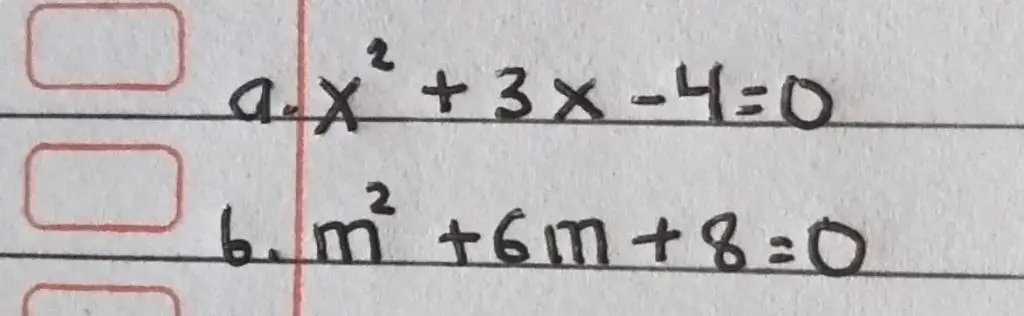 a. x² + 3x - 4 = 0
b. m² + 6m + 8 = 0